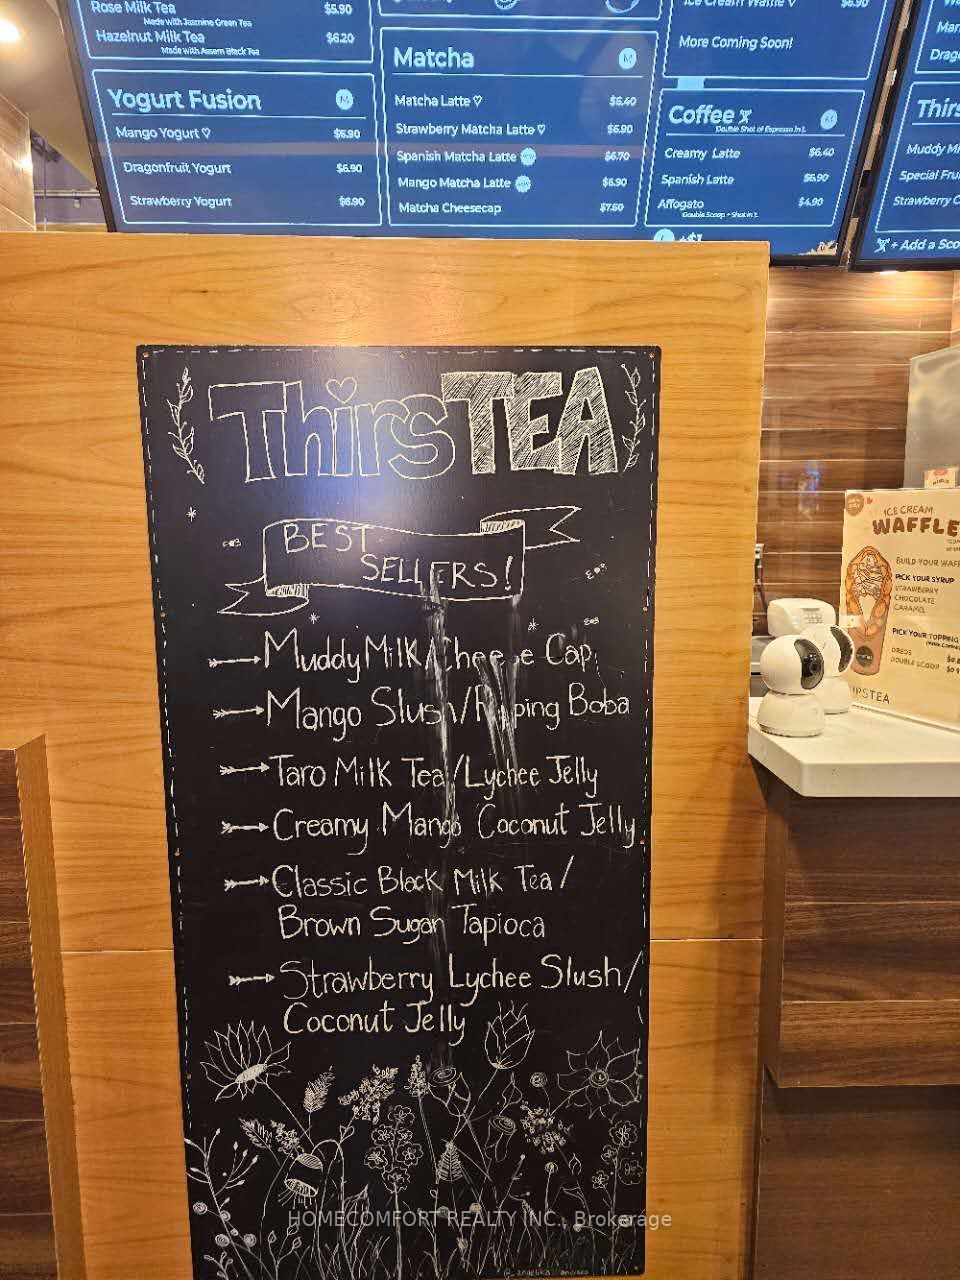 Rose Milk Tea $5.90
Made with Jasmine Green Tea
Hazelnut Milk Tea $6.20
Made with Assam Black Tea
Yogurt Fusion M
Mango Yogurt ♡ $6.90
Dragonfruit Yogurt $6.90
Strawberry Yogurt $6.90
Matcha M
Matcha Latte ♡ $6.40
Strawberry Matcha Latte ♡ $6.90
Spanish Matcha Latte $6.70
Mango Matcha Latte $6.90
Matcha Cheesecap $7.50
Ice Cream Waffle ♡ $6.90
More Coming Soon!
Coffee M
Double Shot of Espresso in L
Creamy Latte $6.40
Spanish Latte $6.90
Affogato $4.90
Double Scoop + Shot in L
L +$1
Mar
Drago
Thirs
Muddy Mi
Special Frui
Strawberry C
+ Add a Sco
ThirsTEA
BEST
SELLERS!
Muddy Milk/Cheese Cap
Mango Slush/Popping Boba
Taro Milk Tea/Lychee Jelly
Creamy Mango Coconut Jelly
Classic Black Milk Tea/
Brown Sugar Tapioca
Strawberry Lychee Slush/
Coconut Jelly
ICE CREAM
WAFFLE
BUILD YOUR WAFF
PICK YOUR SYRUP
STRAWBERRY
CHOCOLATE
CARAMEL
PICK YOUR TOPPING
OREOS $0.
DOUBLE SCOOP $0.
IRSTEA
HOMECOMFORT REALTY INC., Brokerage